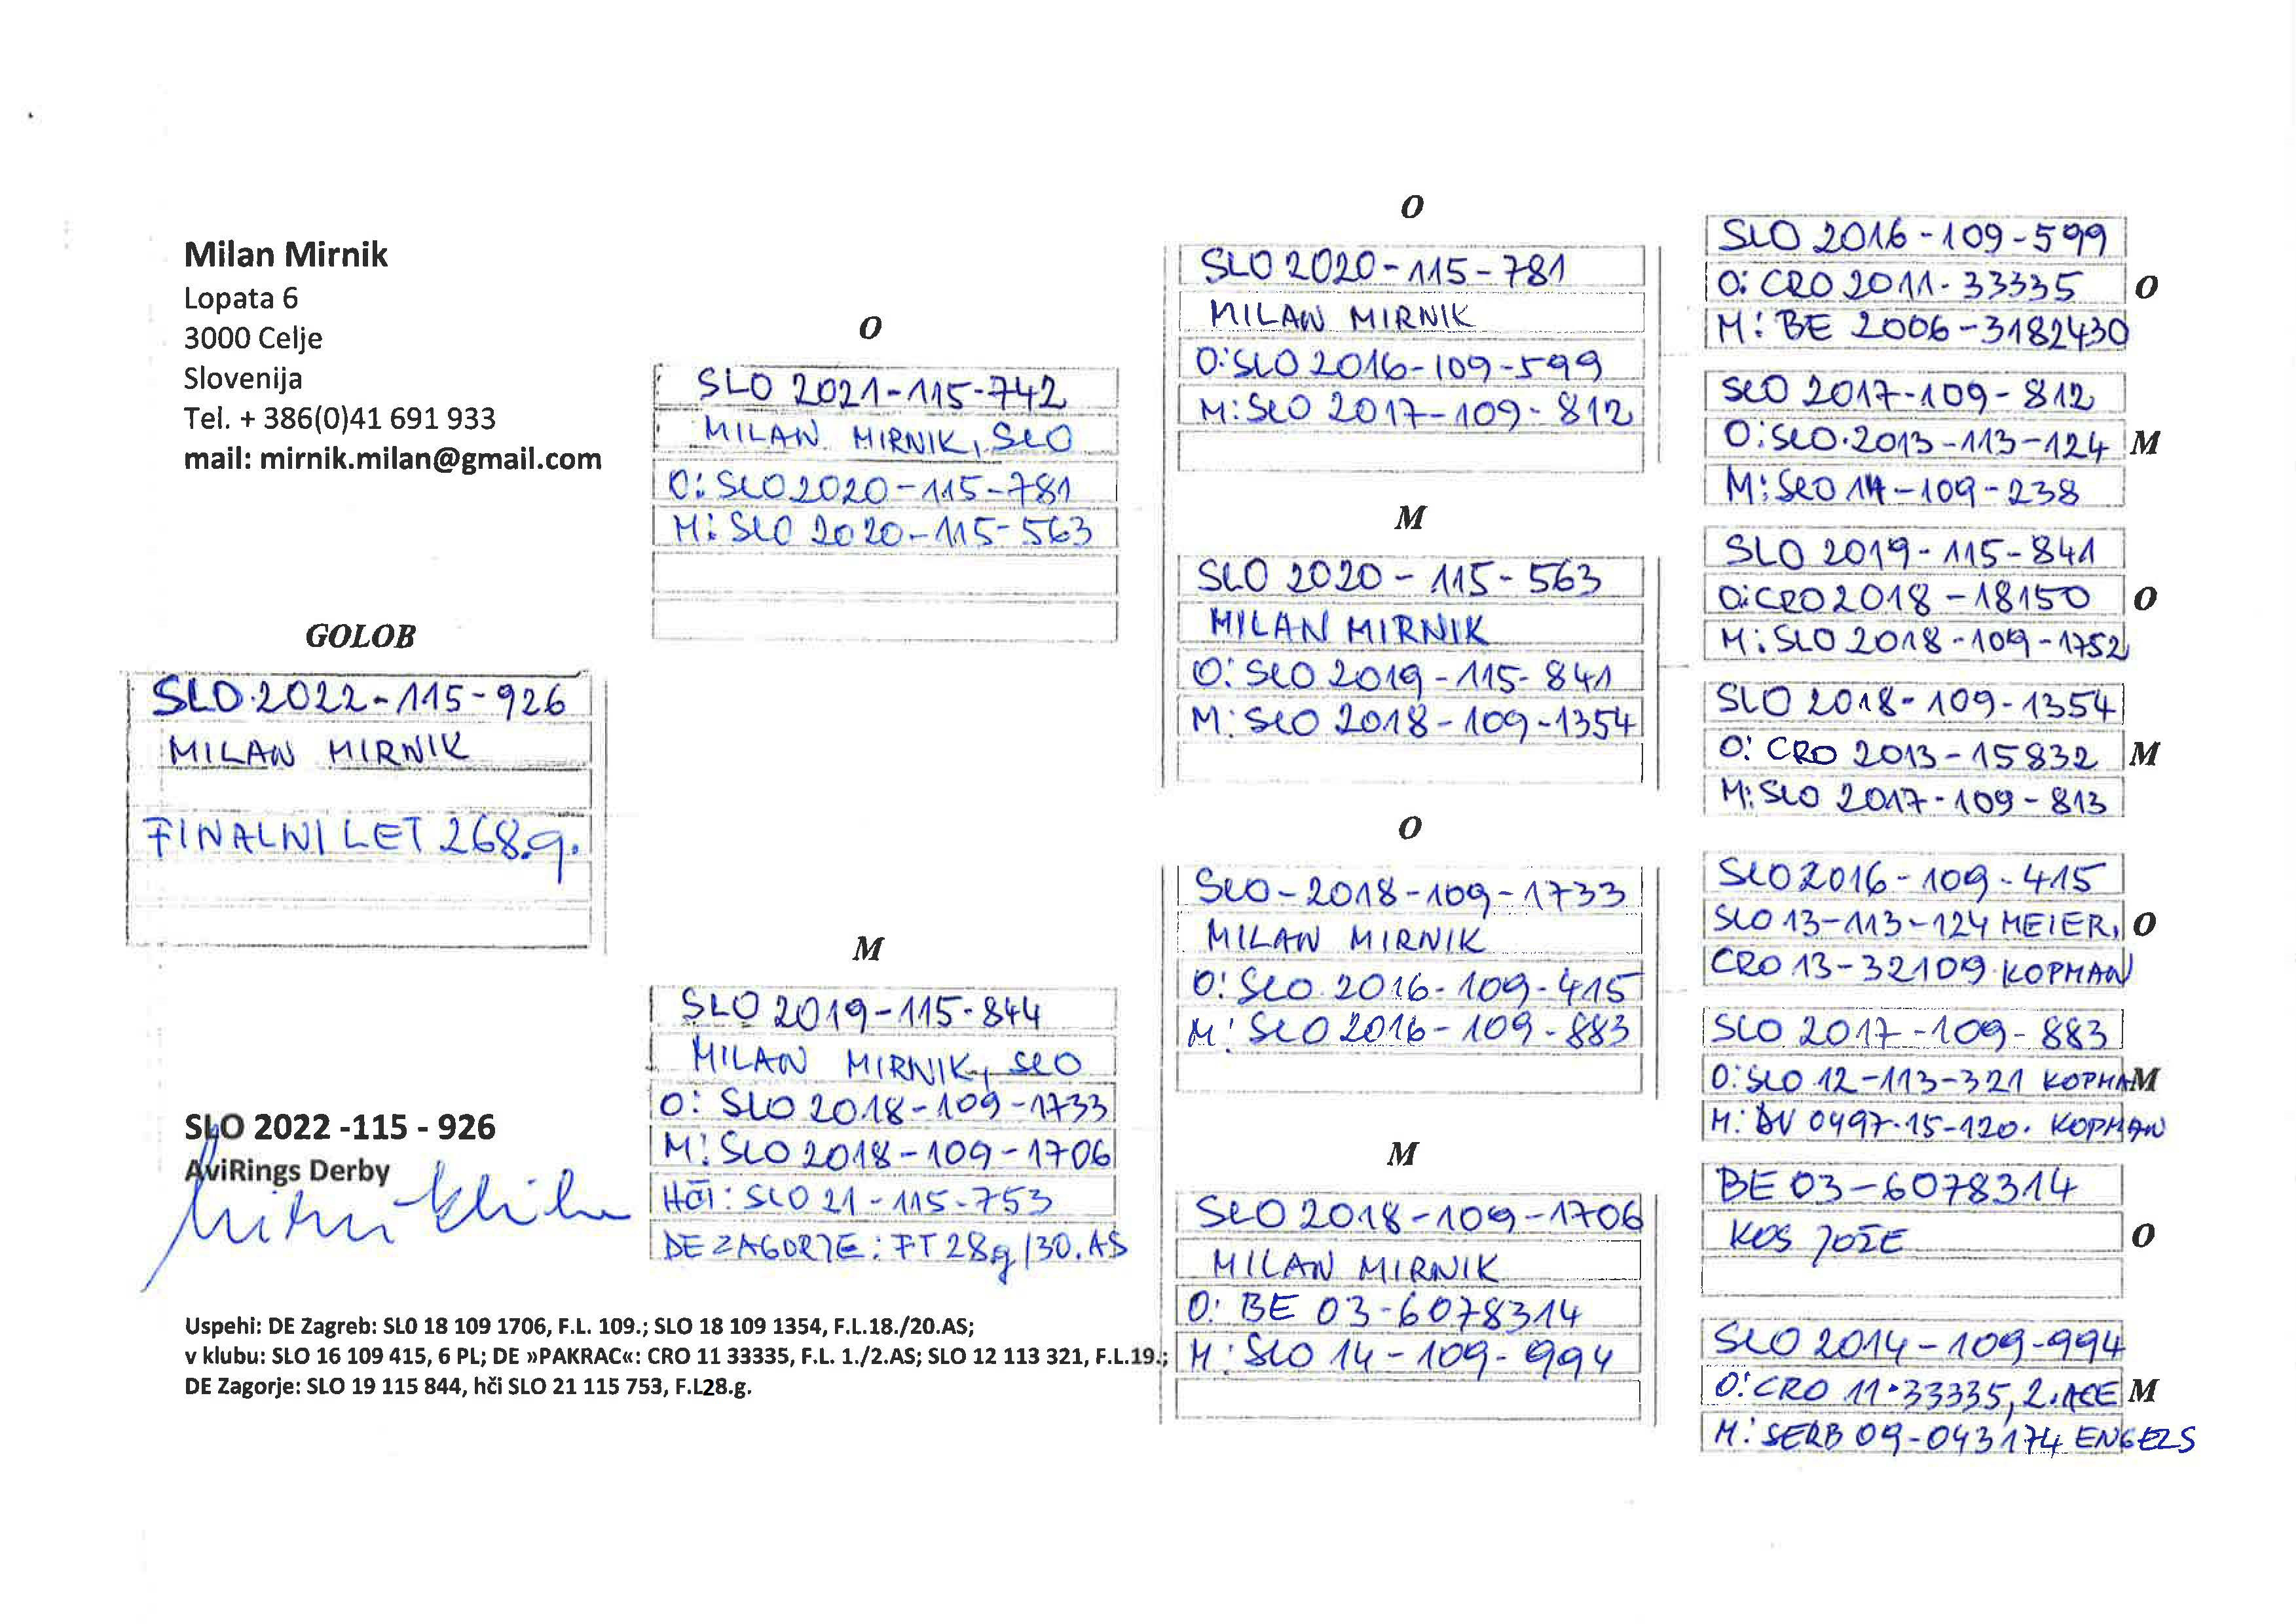 Milan Mirnik
Lopata 6
3000 Celje
Slovenija
Tel. + 386(0)41 691 933
mail: mirnik.milan@gmail.com
GOLOB
SLO 2022-115-926
MILAN MIRNIK
FINALNI LET 268.g.
SLO 2022 -115 - 926
AviRings Derby
O
SLO 2021-115-742
MILAN MIRNIK, SLO
O: SLO 2020-115-781
M: SLO 2020-115-563
M
SLO 2019-115-844
MILAN MIRNIK, SLO
O: SLO 2018-109-1733
M: SLO 2018-109-1706
HČI: SLO 21-115-753
DE ZAGORJE: FT 28g/30.AS
O
SLO 2020-115-781
MILAN MIRNIK
O: SLO 2016-109-599
M: SLO 2017-109-812
M
SLO 2020-115-563
MILAN MIRNIK
O: SLO 2019-115-841
M: SLO 2018-109-1354
O
SLO-2018-109-1733
MILAN MIRNIK
O: SLO 2016-109-415
M: SLO 2016-109-883
M
SLO 2018-109-1706
MILAN MIRNIK
O: BE 03-6078314
M: SLO 14-109-994
SLO 2016-109-599
O: CRO 2011-33335 O
M: BE 2006-3182430
SLO 2017-109-812
O: SLO 2013-113-124 M
M: SLO 14-109-238
SLO 2019-115-841
O: CRO 2018-18150 O
M: SLO 2018-109-1752
SLO 2018-109-1354
O: CRO 2013-15832 M
M: SLO 2017-109-813
SLO 2016-109-415
SLO 13-113-124 MEIER, O
CRO 13-32109 KOPMAN
SLO 2017-109-883
O: SLO 12-113-321 KOPMAN M
M: DV 0497-15-120. KOPMAN
BE 03-6078314
KOS JOŽE O
SLO 2014-109-994
O: CRO 11-33335, 2. ACE M
M: SERB 09-043174 ENGELS
Uspehi: DE Zagreb: SLO 18 109 1706, F.L. 109.; SLO 18 109 1354, F.L.18./20.AS;
v klubu: SLO 16 109 415, 6 PL; DE »PAKRAC«: CRO 11 33335, F.L. 1./2.AS; SLO 12 113 321, F.L.19.;
DE Zagorje: SLO 19 115 844, hči SLO 21 115 753, F.L28.g.